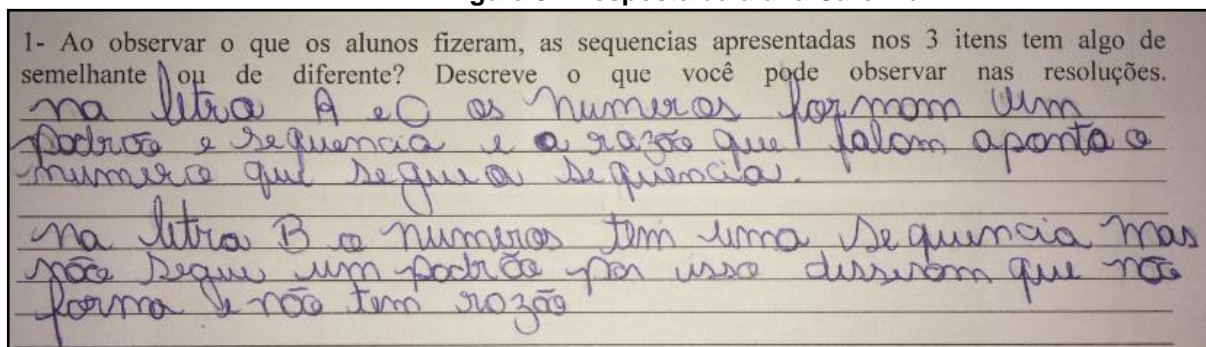 1- Ao observar o que os alunos fizeram, as sequencias apresentadas nos 3 itens tem algo de
semelhante ou de diferente? Descreve o que você pode observar nas resoluções.
na letra A e C os numeros formom um
padrão e sequencia e a razão que falam aponta o
numero que segue a sequencia.
na letra B o numeros tem uma sequencia mas
não segue um padrão por isso disseram que não
forma e não tem razão